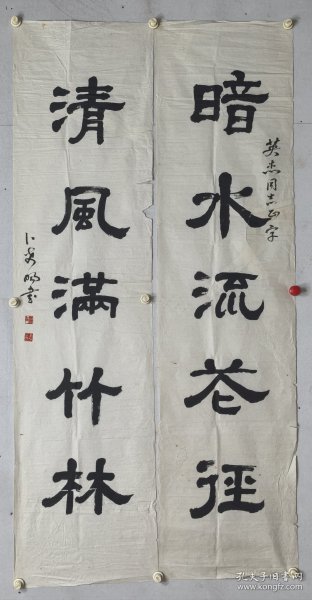 暗水流花径
英杰同志正字
清風滿竹林
孔夫子旧书网
www.kongfz.com